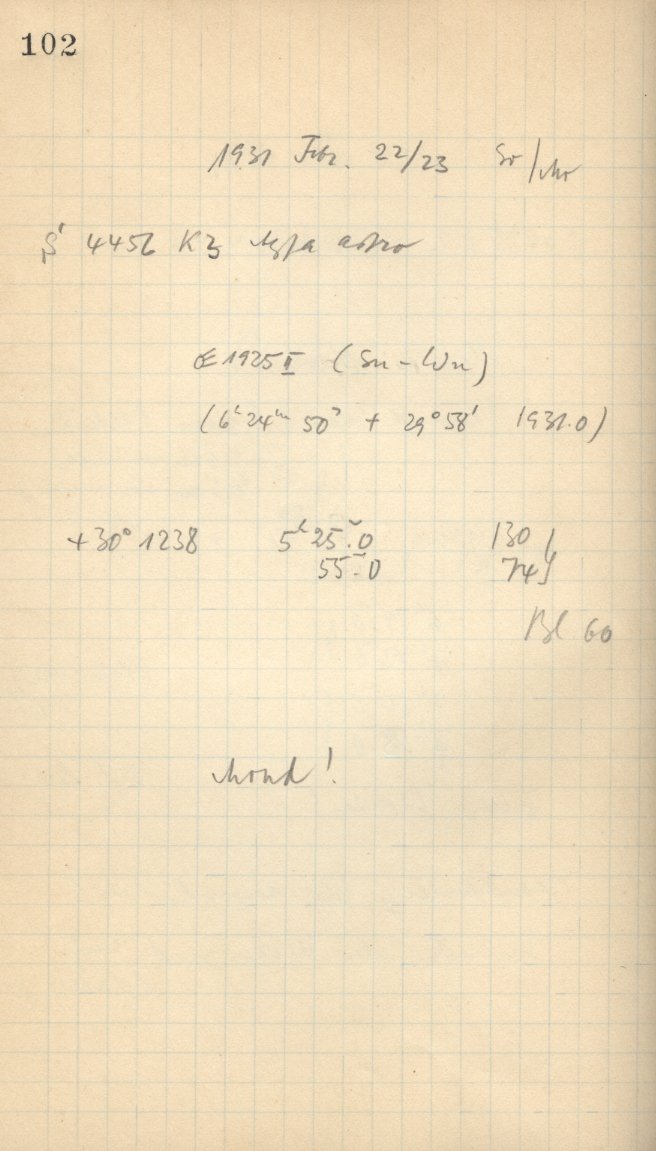 102
1931 Febr. 22/23 So/Mo
4456 Kz Agfa astro
1925 II (Sn-Wn)
(6ʰ 24ᵐ 50ˢ + 29° 58' 1931.0)
+30° 1238 5ʰ 25ᵐ.0 130
55ᵐ.0 74
Bl 60
Mond!